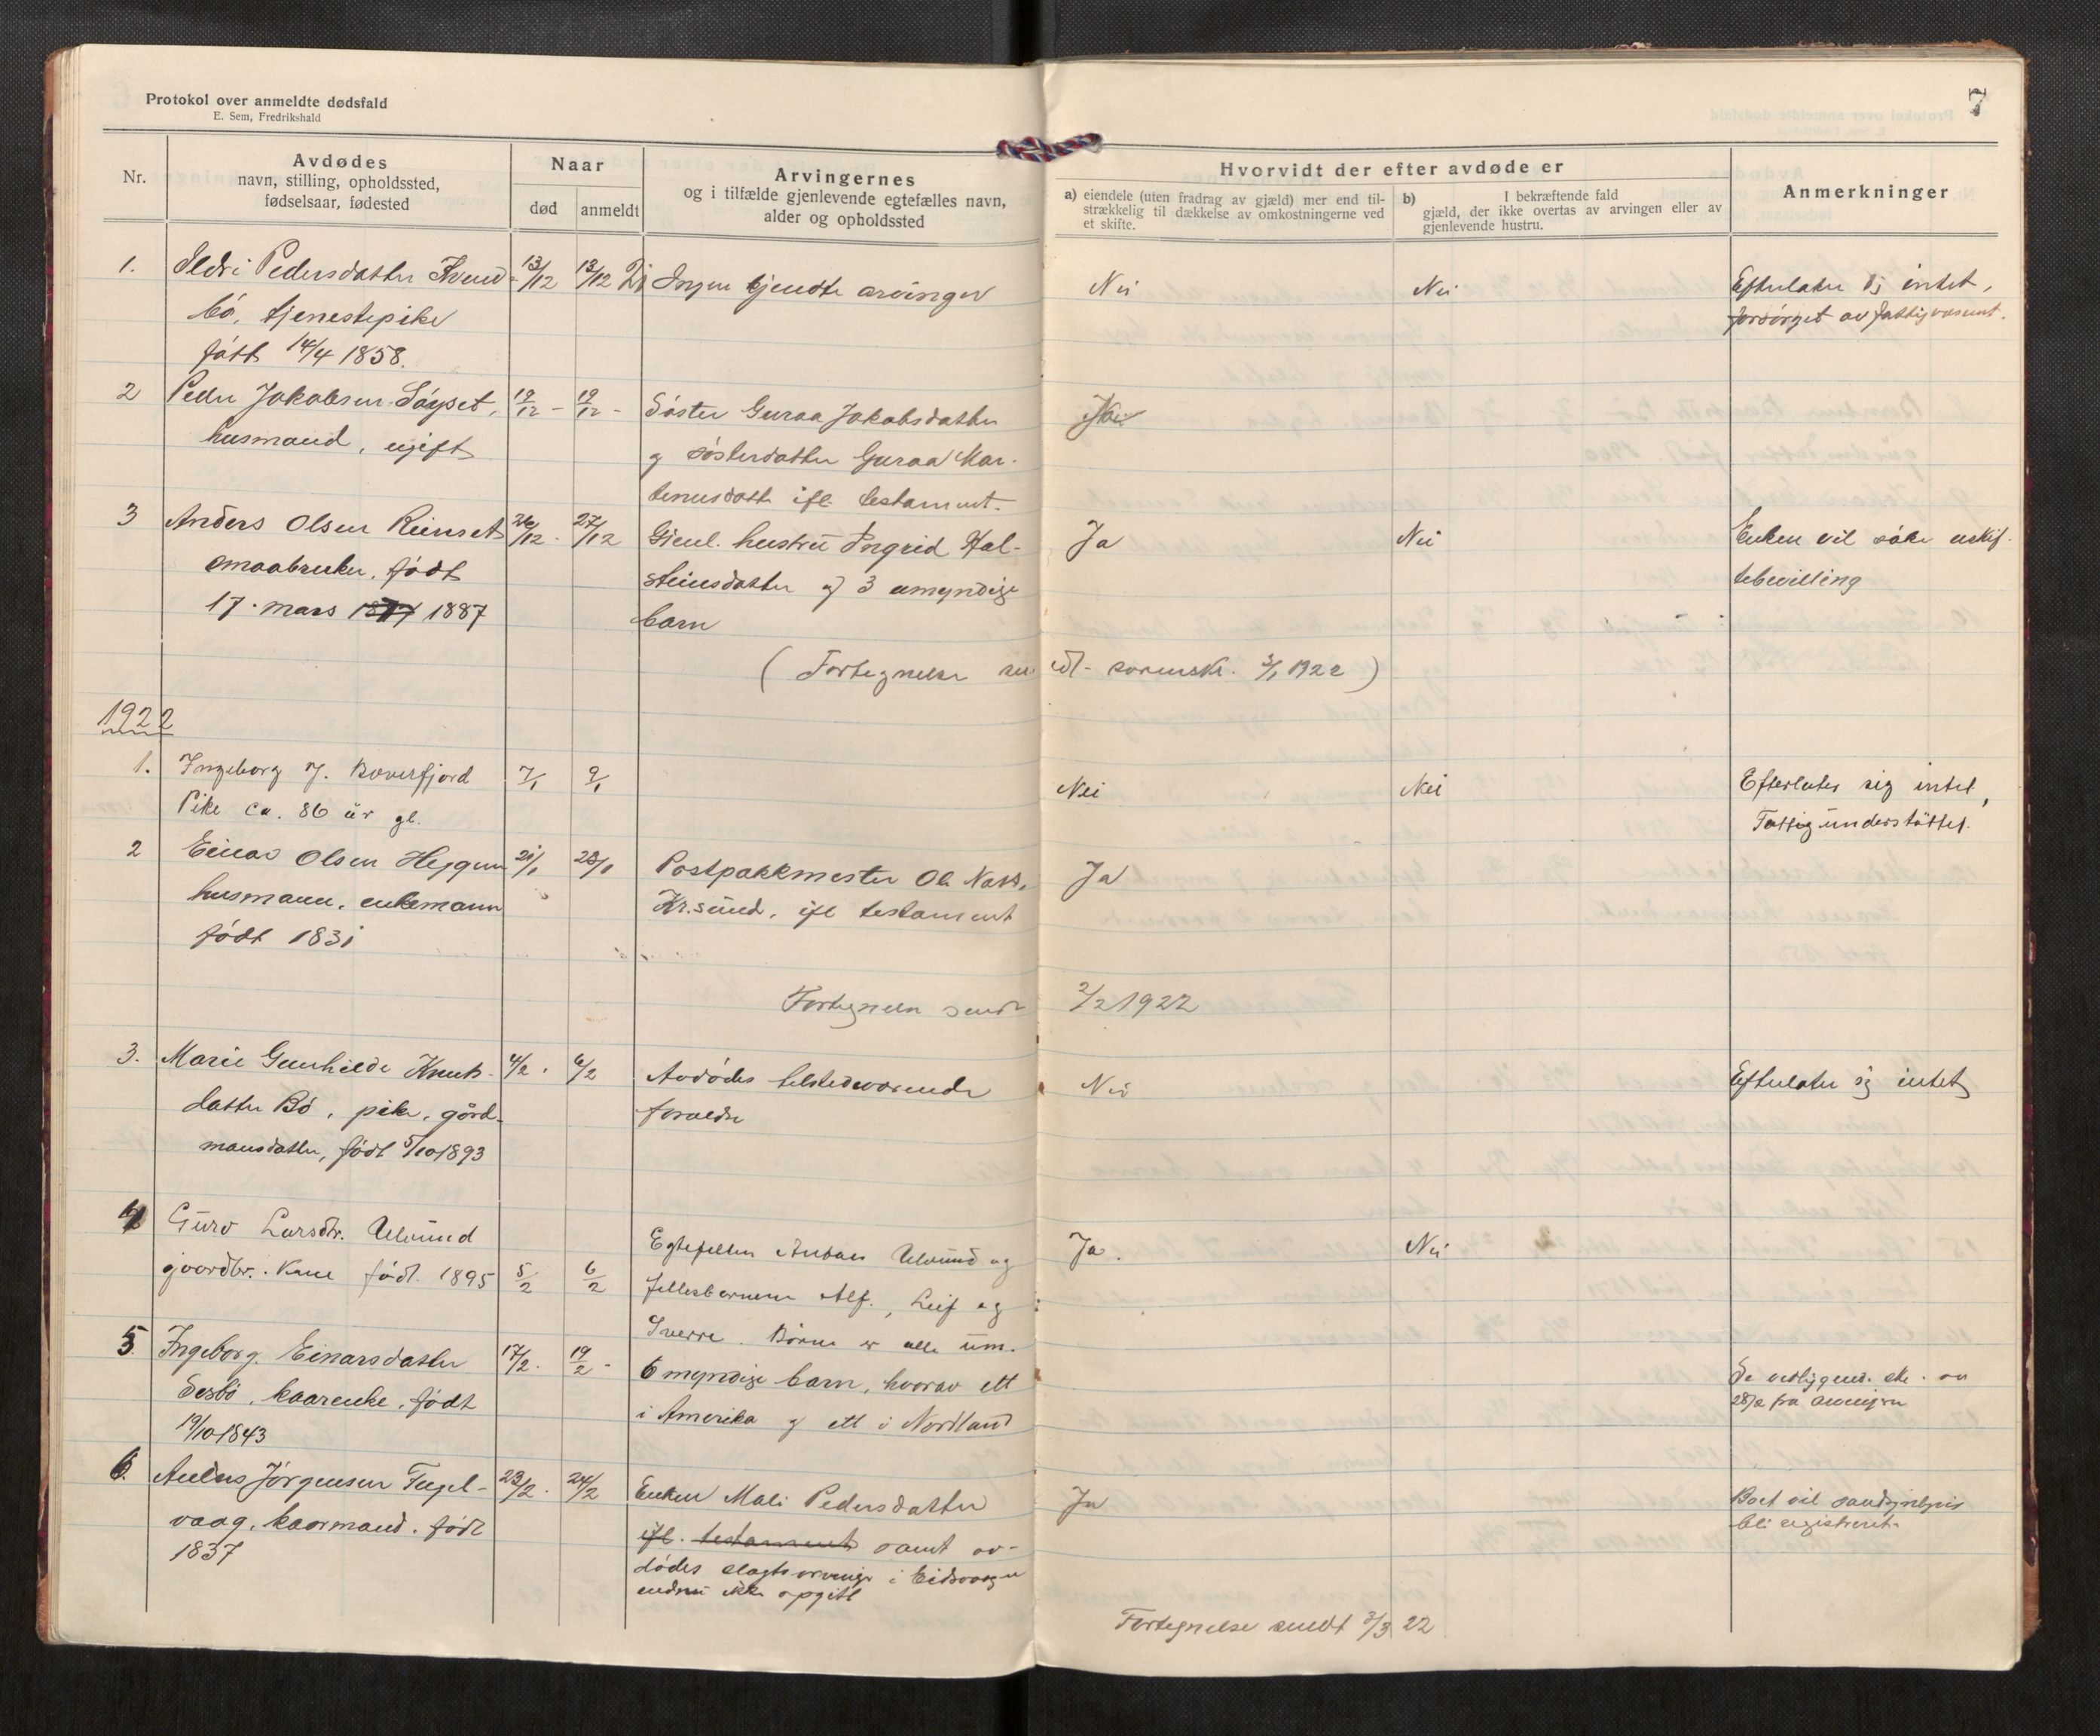 Protokol over anmeldte dødsfald
E. Sem, Fredrikshald
7
Nr.
Avdødes
navn, stilling, opholdssted,
fødselsaar, fødested
Naar
død
anmeldt
Arvingernes
og i tilfælde gjenlevende egtefælles navn,
alder og opholdssted
Hvorvidt der efter avdøde er
a) eiendele (uten fradrag av gjæld) mer end til-
strækkelig til dækkelse av omkostningerne ved
et skifte.
b) I bekræftende fald
gjæld, der ikke overtas av arvingen eller av
gjenlevende hustru.
Anmerkninger
1. Ildri Pedersdatter 13/12 13/12 Ingen kjendte arvinger Nei Nei Efterlater sig intet,
bö, tjenestepike forsörget av fattigvæsenet.
født 14/4 1858.
2 Peder Jakobsen Søyset, 19/12 - 19/12 - Søster Guraa Jakobsdatter
husmand, ugift og søsterdatter Guraa Mar-
tinusdatt ifl. testament.
3 Anders Olsen Reinset 26/12 - 27/12 Gjenl. hustru Ingrid Hal- Ja Nei Enken vil søke uskif-
smaabruker, født steinsdatter og 3 umyndige tebevilling
17. mars 1887 barn
(Fortegnelse sendt sorenskr. 3/1 1922)
1922
1. Ingeborg J. Boverfjord 7/1 9/1 Nei Nei Efterlater sig intet,
Pike ca. 86 år gl. Fattigunderstöttet.
2 Einar Olsen Heggem 21/1 28/1 Postpakkmester Ole Ja
husmann, enkemann Kr.sund, ifl testament
født 1831
Fortegnelse sendt 2/2 1922
3. Marie Gunhilde Knuts- 4/2 . 6/2 Avdödes tilstedeværende Nei Efterlater sig intet
datter Bö, pike, gård- forældre
mansdatter, født 5/10 1893
4 Guro Larsdtr. Ulvund Egtefellen Ulvund og Ja. Nei
gaardbr. Kone födt 1895 5/2 6/2 fellesbarnene Alf, Leif og
Sverre. Børna er alle um.
5. Ingeborg Einarsdatter 17/2. 19/2 - 6 myndige barn, hvorav ett
kaarenke, født i Amerika og ett i Nordland 28/2 fra
19/10 1843
6. Jörgensen Fugel- 23/2. 24/2 Enken Mali Pedersdatter Ja Boet vil
vaag, kaarmand, født ifl. testament samt av- bli registreret.
1837 dödes slagtsarvinge i Eidsvaag
endnu ikke opgitt
Fortegnelse sendt 3/3 22